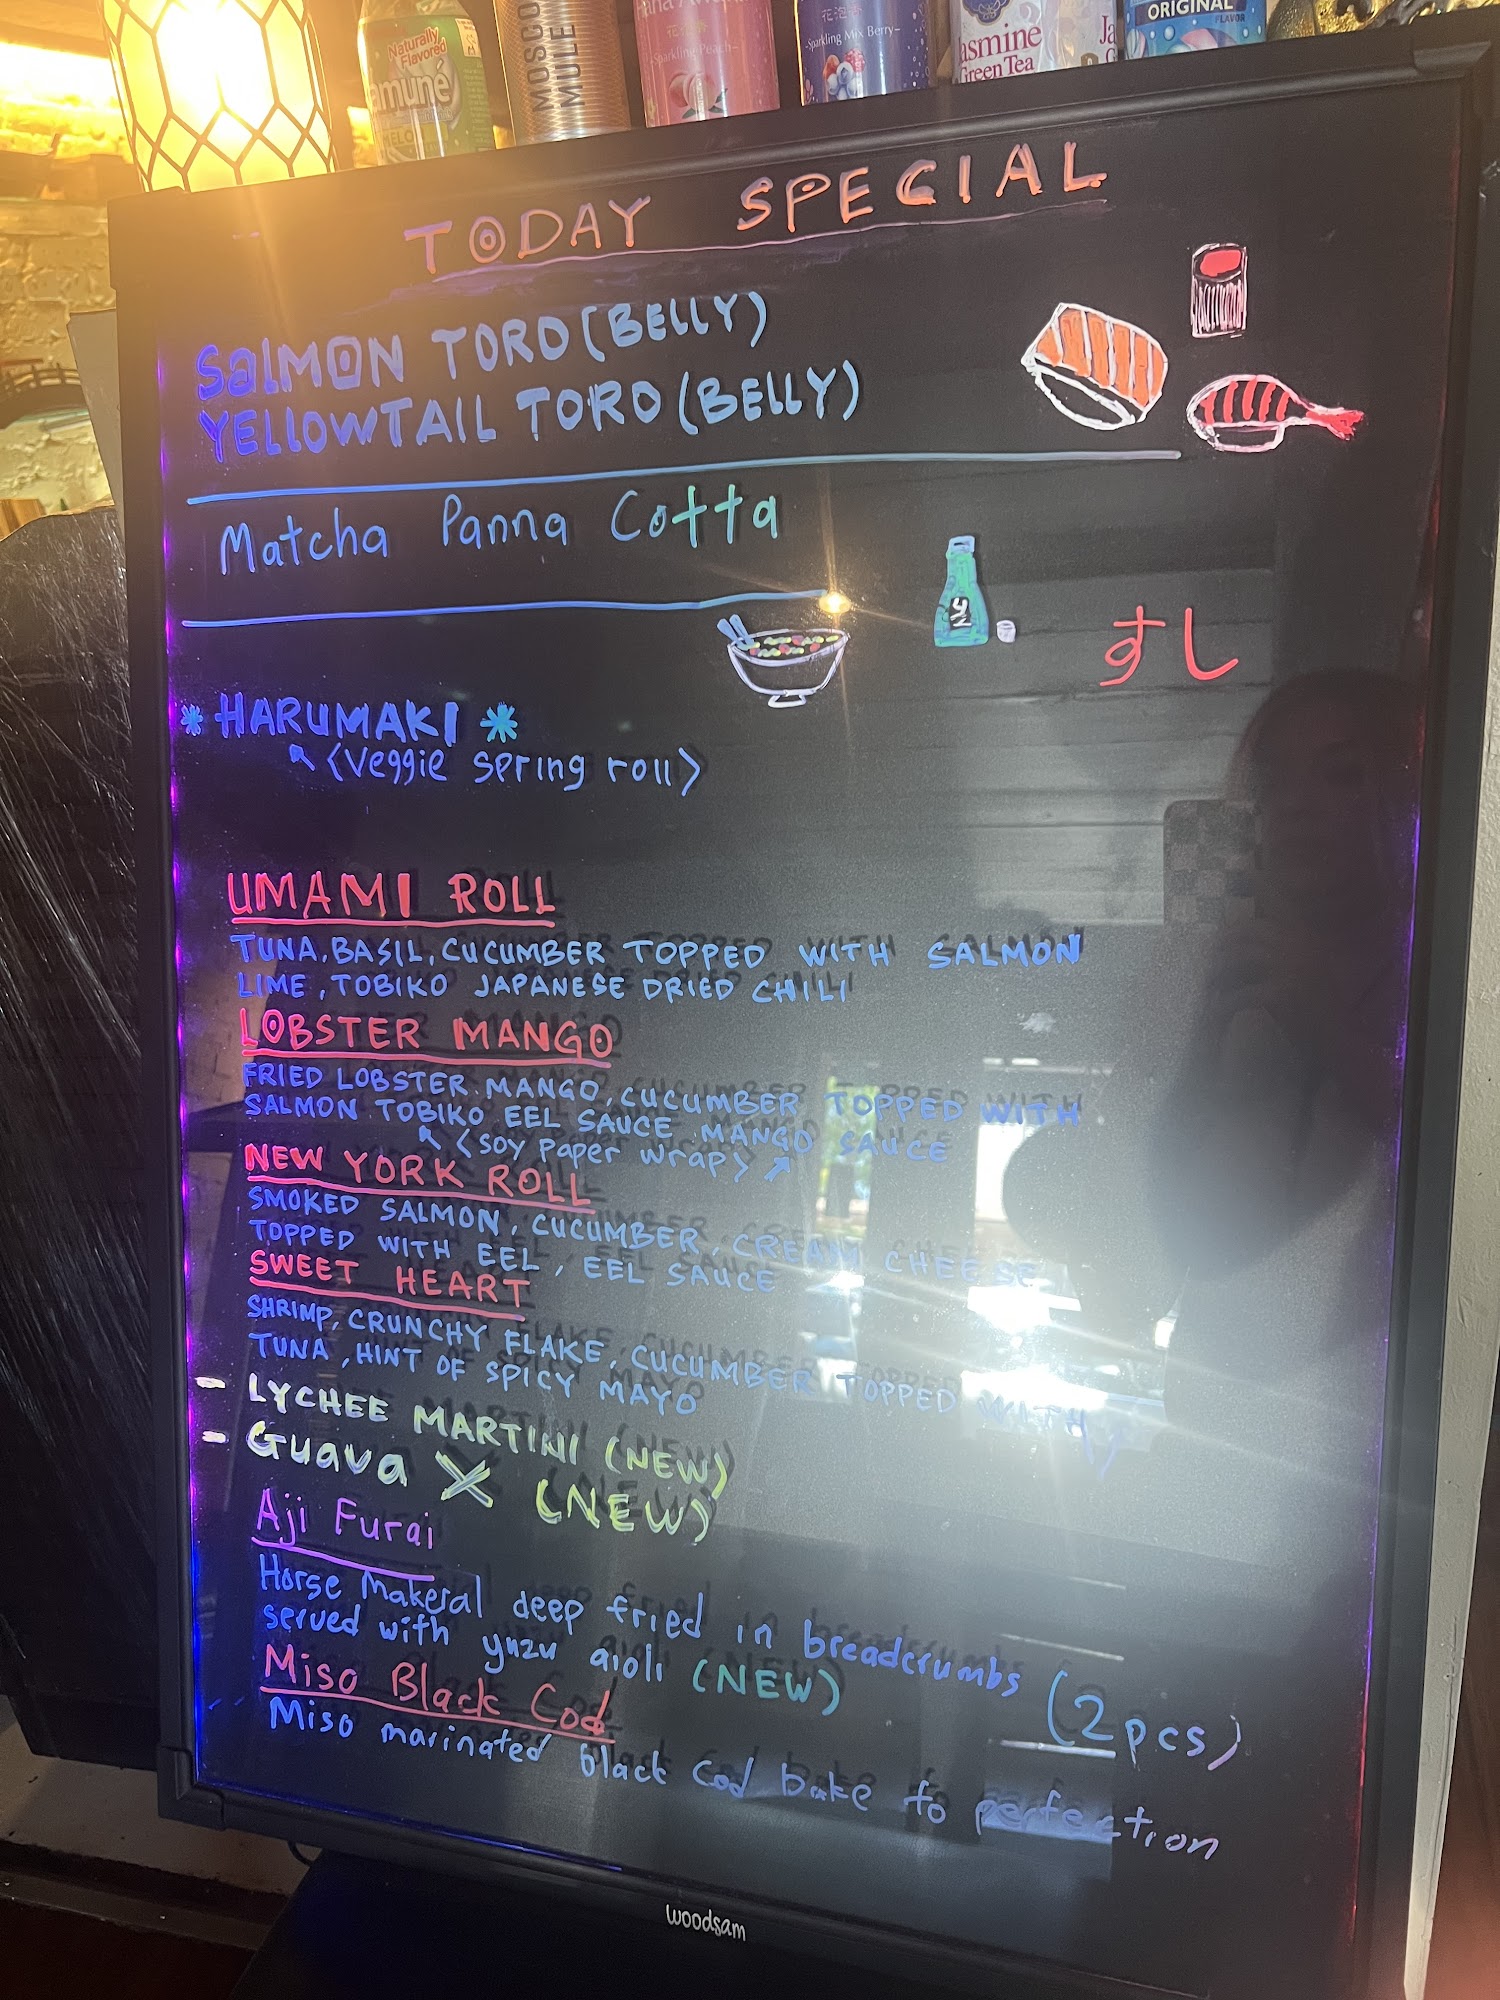 Naturally
Flavored
amuné
MELO
MOSCO
MULE
-Sparkling Peach-
花泡
-Sparkling Mix Berry-
Jasmine
Green Tea
Ja
ORIGINAL
FLAVOR
TODAY SPECIAL
SALMON TORO (BELLY)
YELLOWTAIL TORO (BELLY)
Matcha Panna Cotta
すし
* HARUMAKI *
<veggie spring roll>
UMAMI ROLL
TUNA, BASIL, CUCUMBER TOPPED WITH SALMON
LIME, TOBIKO JAPANESE DRIED CHILI
LOBSTER MANGO
FRIED LOBSTER, MANGO, CUCUMBER TOPPED WITH
SALMON TOBIKO EEL SAUCE, MANGO SAUCE
<soy paper wrap>
NEW YORK ROLL
SMOKED SALMON, CUCUMBER, CREAM CHEESE
TOPPED WITH EEL, EEL SAUCE
SWEET HEART
SHRIMP, CRUNCHY FLAKE, CUCUMBER TOPPED WITH
TUNA, HINT OF SPICY MAYO
- LYCHEE MARTINI (NEW)
- Guava X (NEW)
Aji Furai
Horse Makeral deep fried in breadcrumbs (2pcs)
served with yuzu aioli (NEW)
Miso Black Cod
Miso marinated black cod bake to perfection
woodsam